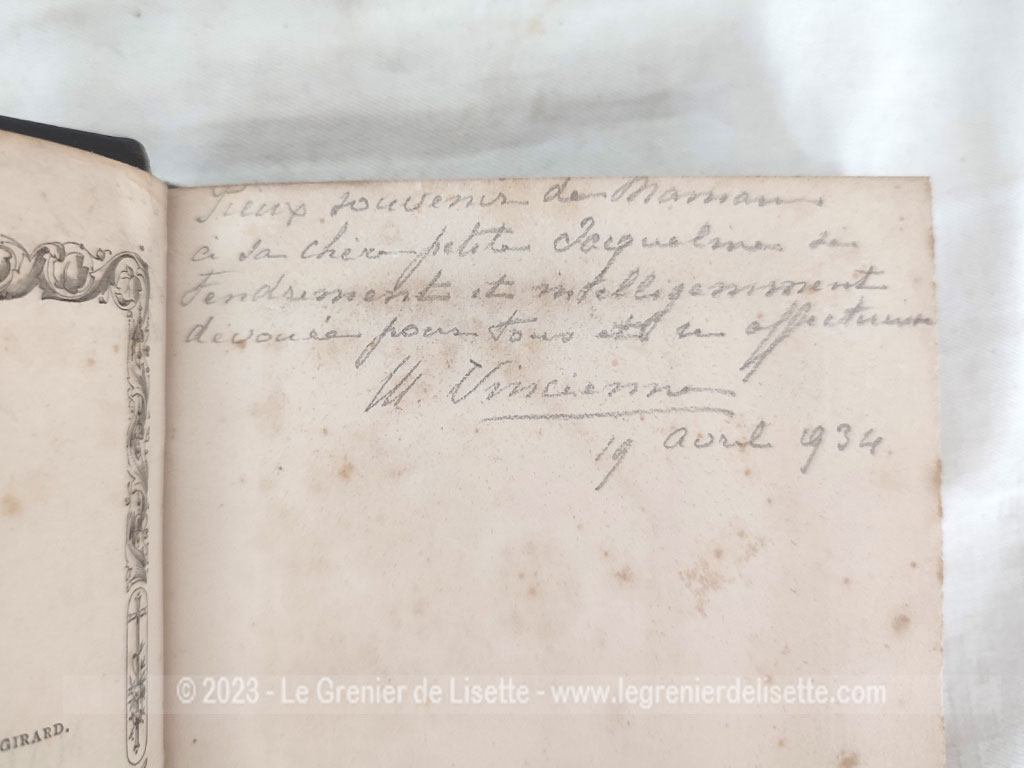 Pieux souvenir de Maman
à sa chère petite Jacqueline si
tendrement et intelligemment
dévouée pour tous et si affectueuse
M. Vincienne
19 avril 1934.
GIRARD.
© 2023 - Le Grenier de Lisette - www.legrenierdelisette.com